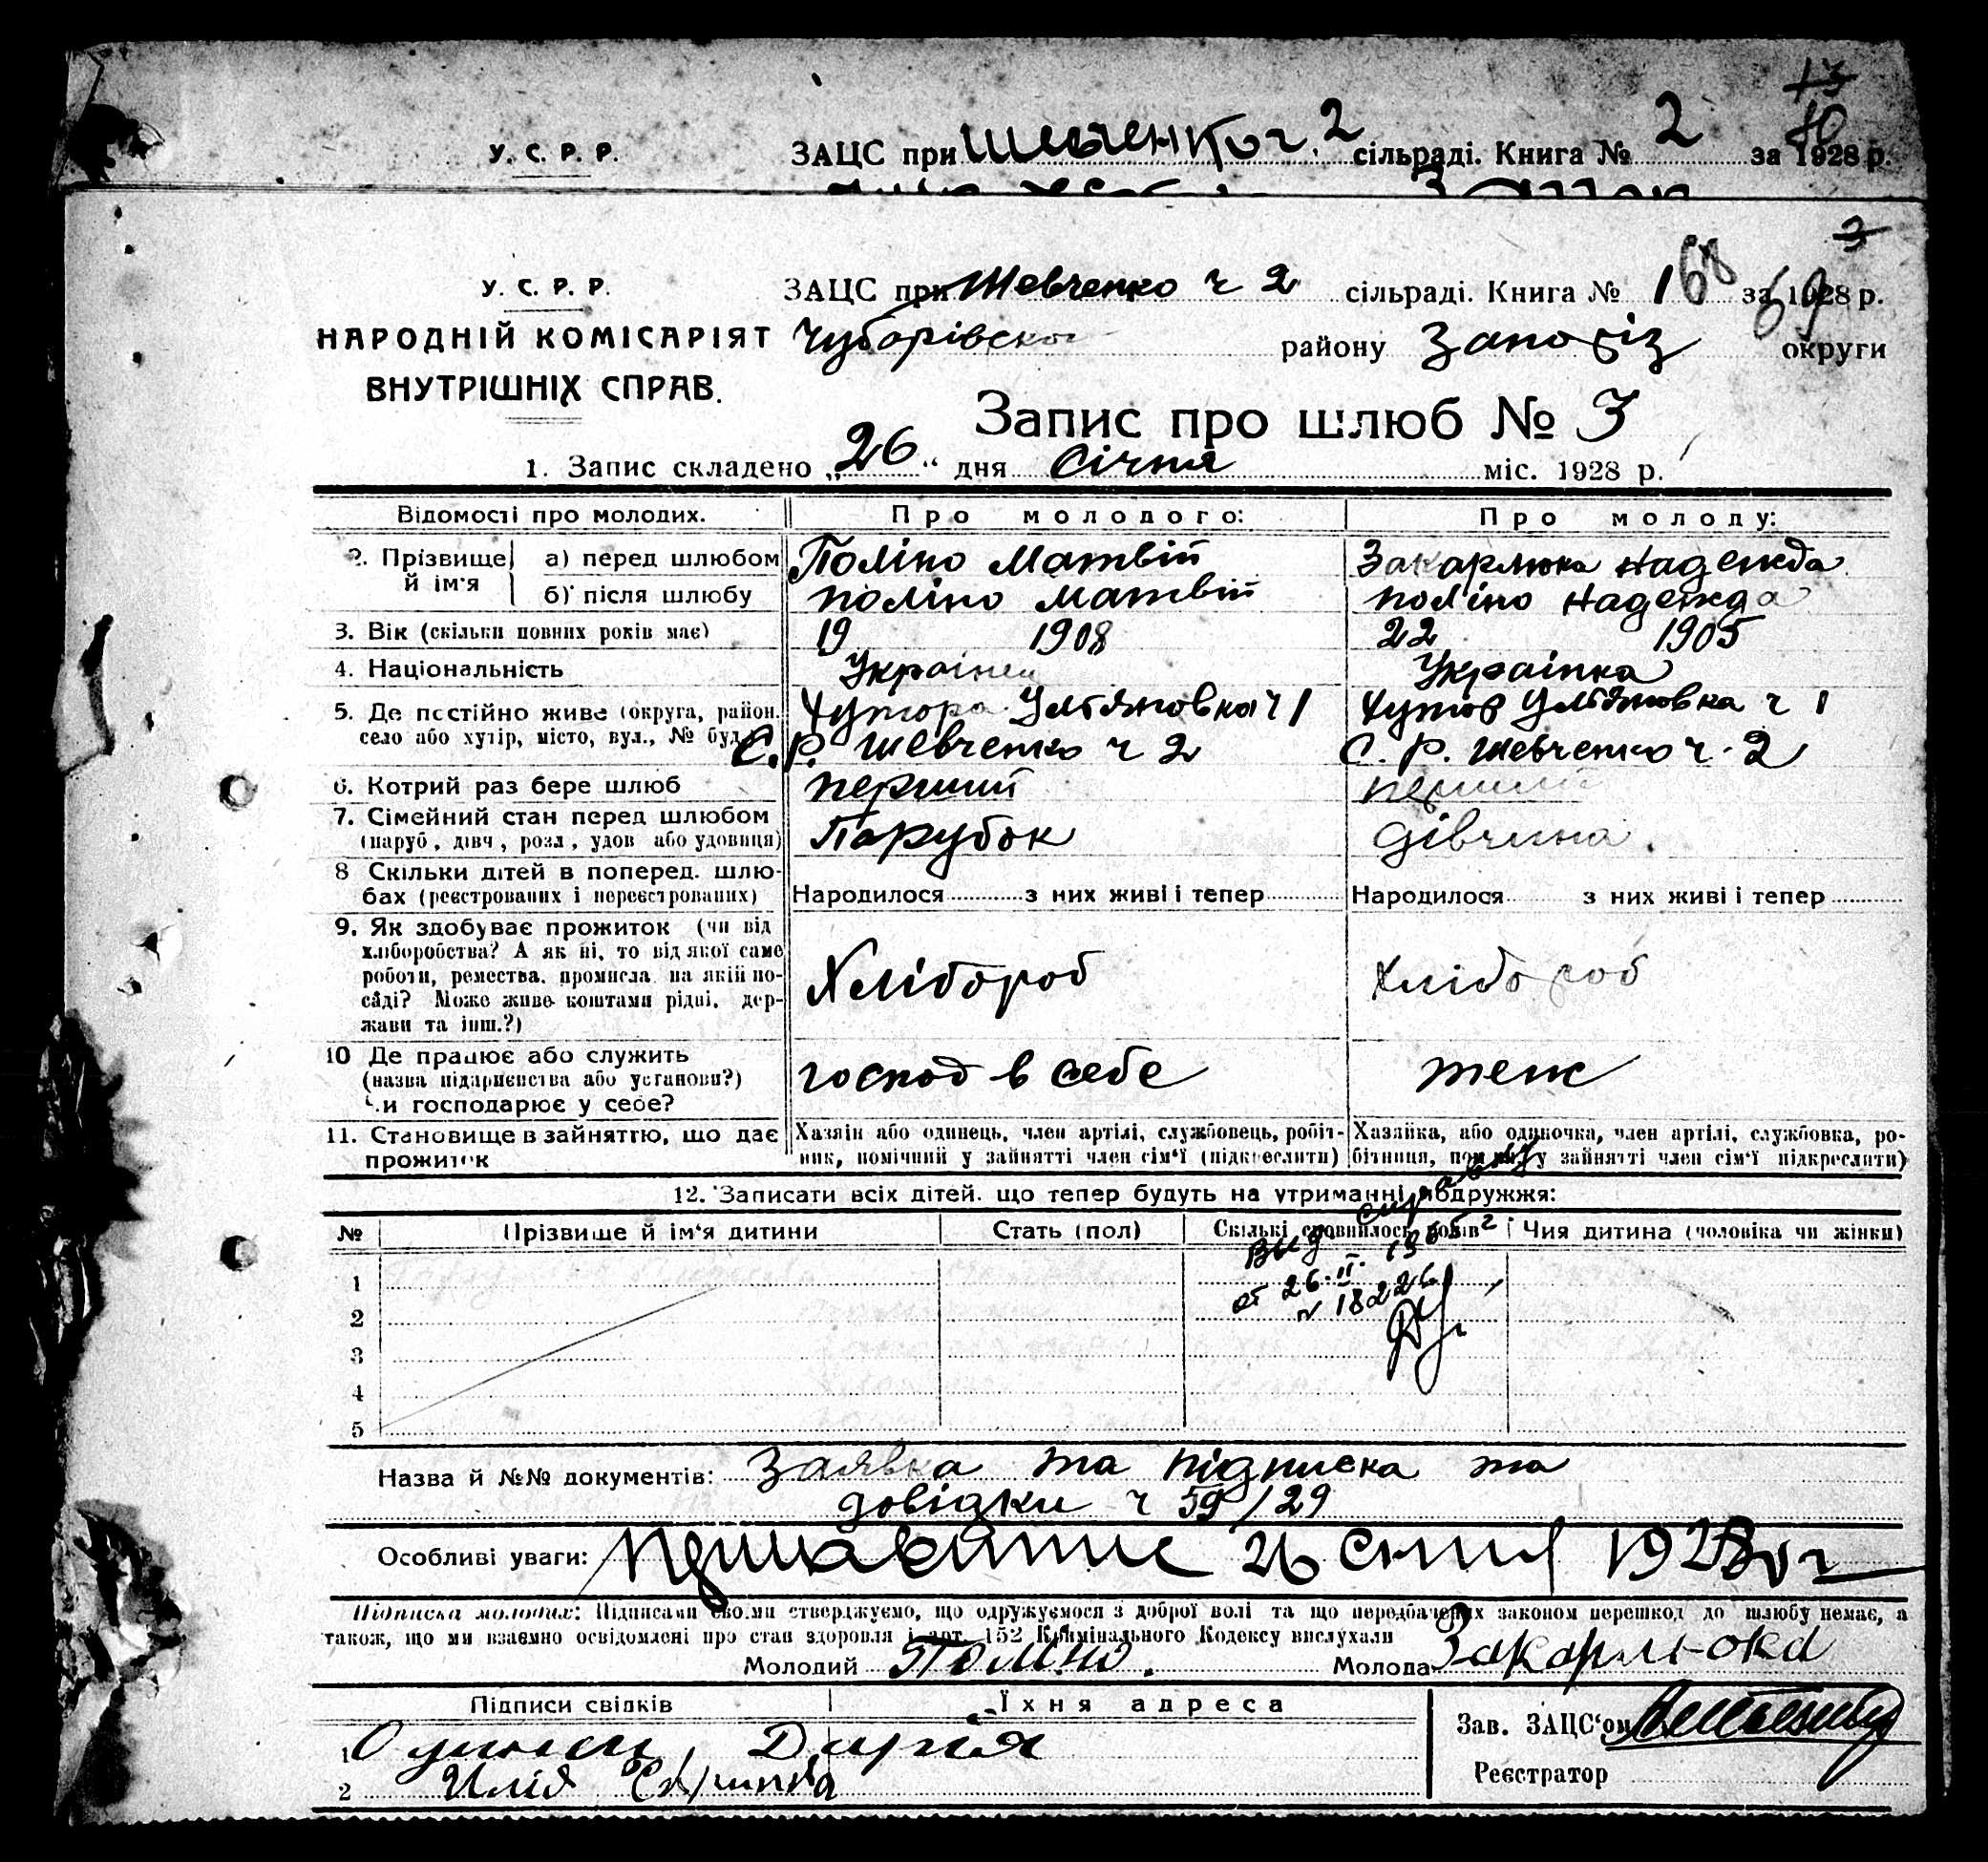 У. С. Р. Р. ЗАЦС при Шевченко ч. 2 сільраді. Книга № 2 за 1928 р.
У. С. Р. Р. ЗАЦС при Шевченко ч 2 сільраді. Книга № 168 за 1928 р.
НАРОДНІЙ КОМІСАРІЯТ Чубарівсько району Запоріз округи
ВНУТРІШНІХ СПРАВ.
Запис про шлюб № 3
1. Запис складено „26“ дня Січня міс. 1928 р.
Відомості про молодих. Про молодого: Про молоду:
2. Прізвище й ім'я а) перед шлюбом Поліно Матвій Закарлюка Надежда
б) після шлюбу Поліно Матвій Поліно Надежда
3. Вік (скільки повних років має) 19 1908 22 1905
4. Національність Українец Українка
5. Де постійно живе (округа, район, Хутора Ултяновка ч 1 Хутор Ултяновка ч 1
село або хутір, місто, вул., № буд.) С. Р. Шевченко ч 2 С. Р. Шевченко ч. 2
6. Котрий раз бере шлюб перший перший
7. Сімейний стан перед шлюбом Парубок дівчина
(паруб, дівч, розл, удов або удовиця)
8 Скільки дітей в поперед. шлю-
бах (реєстрованих і нереєстрованих) Народилося з них живі і тепер Народилося з них живі і тепер
9. Як здобуває прожиток (чи від
хліборобства? А як ні, то від якої саме
роботи, ремества, промисла, на якій по- Хлібороб Хлібороб
саді? Може живе коштами рідні, дер-
жави та інш.?)
10 Де працює або служить
(назва підприємства або установи?) господ в себе теж
Чи господарює у себе?
11. Становище в зайняттю, що дає Хазяїн або одинець, член артілі, службовець, робіт- Хазяйка, або одиночка, член артілі, службовка, ро-
прожиток ник, помічний у зайнятті член сім'ї (підкреслити) бітниця, помічну у зайнятті член сім'ї підкреслити)
12. Записати всіх дітей, що тепер будуть на утриманні подружжя:
№ Прізвище й ім'я дитини Стать (пол) Скількі сповнилось років Чия дитина (чоловіка чи жінки)
Вид. справку
1 от 26. II. 1965 г
2 № 18226
3
4
5
Назва й №№ документів: Заявка та підписка та
довідки ч 59/29
Особливі уваги: 26 1928
Підписка молодих: Підписами своїми стверджуємо, що одружуємося з доброї волі та що передбачених законом перешкод до шлюбу немає, а
також, що ми взаємно освідомлені про стан здоровля і арт. 152 Кримінального Кодексу вислухали
Молодий Поліно. Молода Закарлюка
Підписи свідків Їхня адреса
Зав. ЗАЦС'ом
1 Дирія
2 Илія
Реєстратор